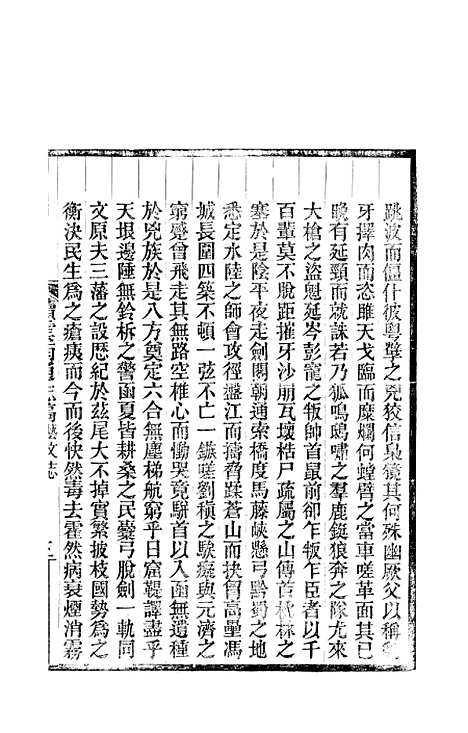 跳波而僵仆彼粵孽之兇狡信梟獍其何殊幽厥父以稱
牙擇肉而恣雎天戈臨而糜爛何螳臂之當車嗟革面其已
晚有延頸而就誅若乃狐鳴鴟嘯之羣鹿鋌狼奔之隊尤來
大槍之盜魁延岑彭寵之叛帥首鼠前卻乍叛乍臣者以千
百輩莫不脫距摧牙沙崩瓦壞楛尸疏屬之山傳首藁林之
塞於是陰平夜走劍閣朝通索橋度馬藤峽懸弓黔蜀之地
悉定水陸之師會攻徑盤江而擣脅蹂蒼山而抉胷高壘馮
城長圍四築不頓一弦不亡一鏃嗟劉稹之騃癡與元濟之
窮蹙曾飛走其無路空椎心而慟哭竟駢首以入函無遺種
於兇族於是八方奠定六合無塵梯航窮乎日窟鞮譯盡乎
天垠邊陲無鈴柝之警函夏皆耕桑之民櫜弓脫劍一軌同
文原夫三藩之設歷紀於茲尾大不掉實繁披枝國勢爲之
衡決民生爲之瘡痍而今而後快然毒去霍然病衰煙消霧
藝文志
三